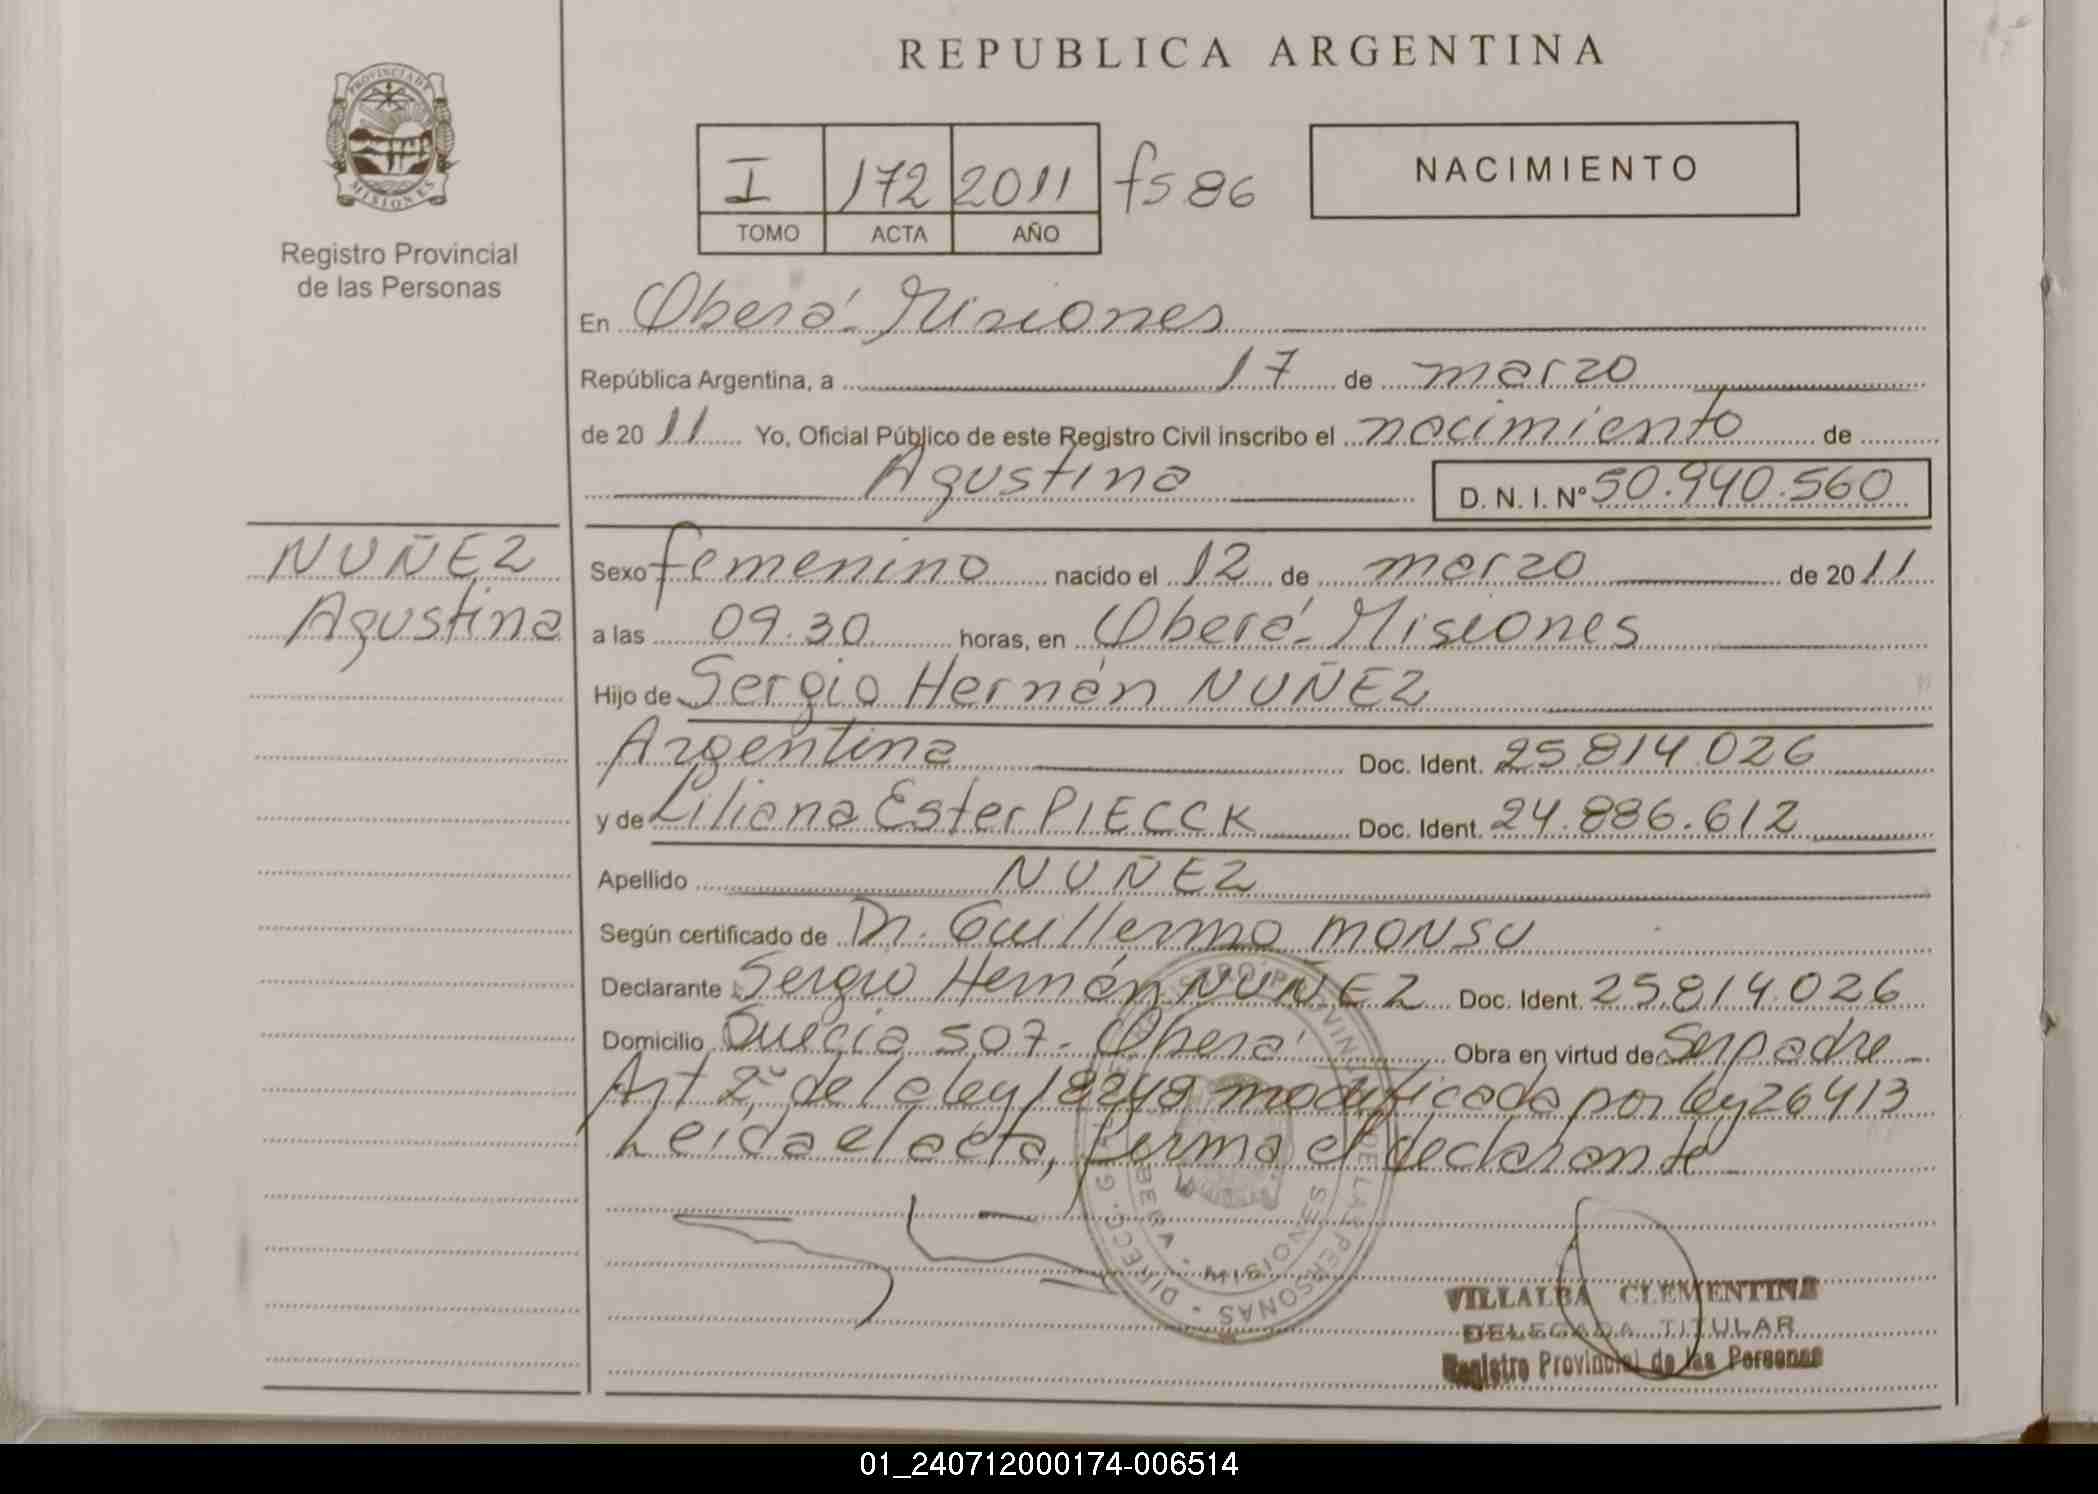 REPUBLICA ARGENTINA
PROVINCIA DE
MISIONES
Registro Provincial
de las Personas
I 172 2011 fs 86
TOMO ACTA AÑO
NACIMIENTO
En Oberá - Misiones
República Argentina, a 17 de marzo
de 2011 Yo, Oficial Público de este Registro Civil inscribo el nacimiento de
Agustina D. N. I. Nº 50.940.560
NUÑEZ
Agustina
Sexo femenino nacido el 12 de marzo de 2011
a las 09.30 horas, en Oberá - Misiones
Hijo de Sergio Hernán NUÑEZ
Argentina Doc. Ident. 25.814.026
y de Liliana Ester PIECCK Doc. Ident. 24.886.612
Apellido NUÑEZ
Según certificado de Dr. Guillermo MONSU
Declarante Sergio Hernán NUÑEZ Doc. Ident. 25.814.026
Domicilio Suecia 507 - Oberá Obra en virtud de Ser padre
Art 2º de la ley 18248 modificada por ley 26413
Leida el acta, firma el declarante
VILLALBA CLEMENTINA
DELEGADA TITULAR
Registro Provincial de las Personas
01_240712000174-006514